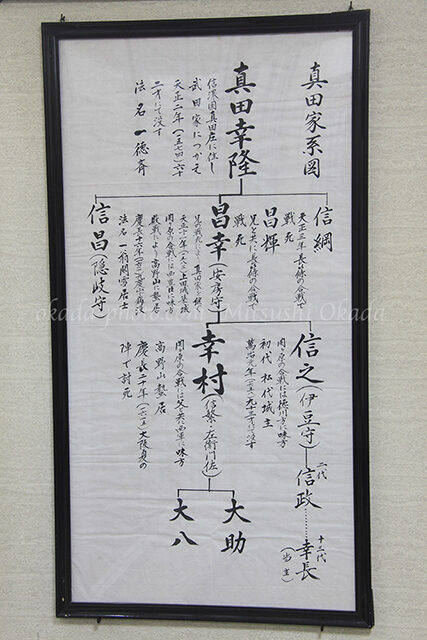 真田家系図
真田幸隆
信濃国真田庄に住し
武田家につかえ
天正二年(一五七四)六十
二才にて没す
法名 一徳斎
信綱
天正三年長篠の合戦で
戦死
昌輝
兄と共に長篠の合戦で
戦死
昌幸(安房守)
兄の戦死により真田家を継ぐ
関ヶ原の合戦には西軍に味方
敗戦により高野山に蟄居
法名 一翁閑雪居士
信昌(隠岐守)
信之(伊豆守)
関ヶ原の合戦には徳川方に味方
初代松代城主
萬治元年(一六五八)九十三才にて没す
二代
信政
十三代
幸長
(当主)
幸村(信繁・左衛門佐)
関ヶ原の合戦には父と共に西軍に味方
高野山蟄居
慶長二十年(一六一五)大阪夏の
陣で討死
大助
大八
okada photo.com / Mitsushi Okada